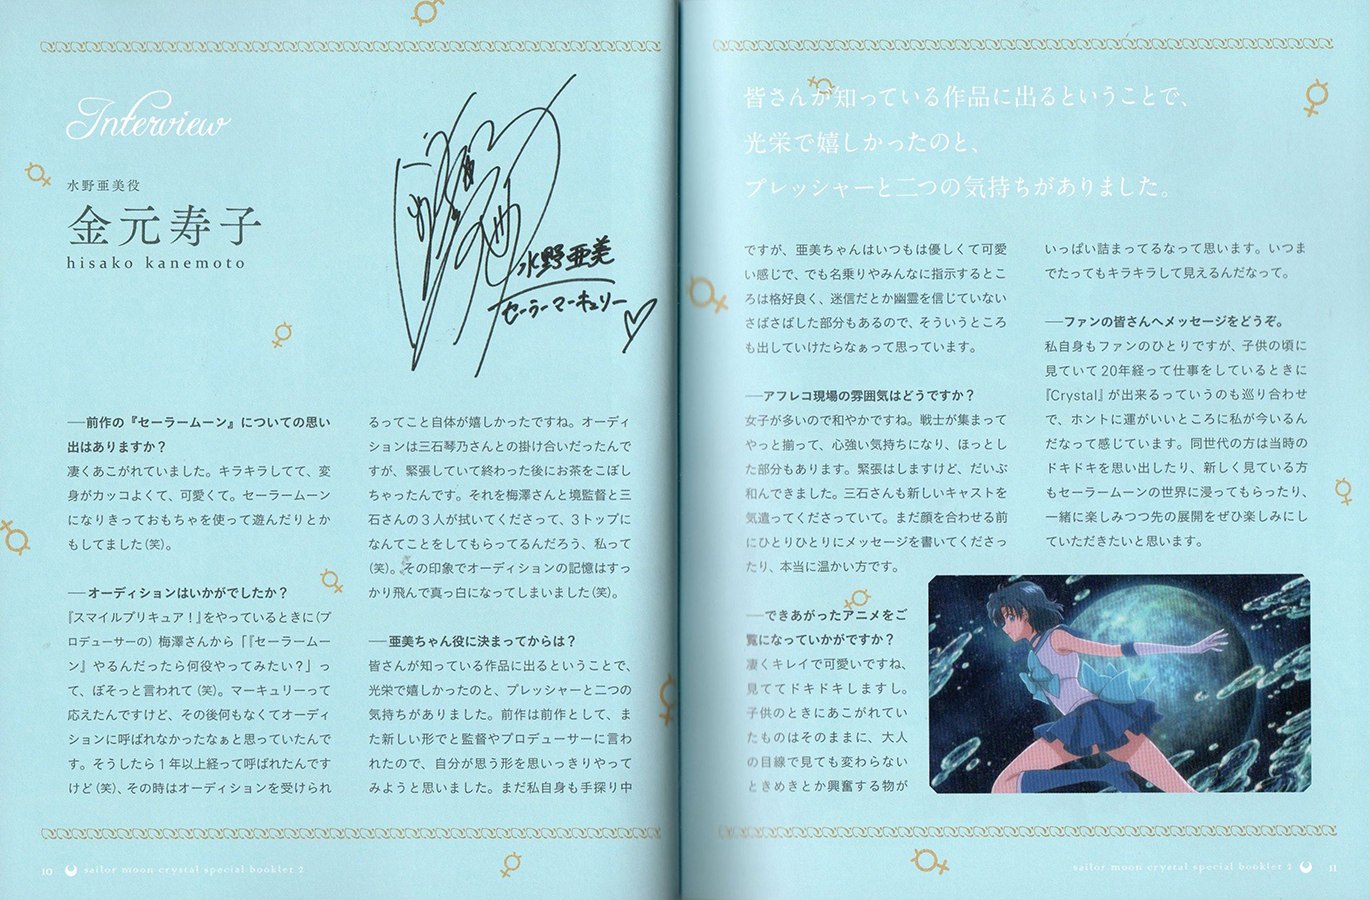 Interview
水野亜美役
金元寿子
hisako kanemoto
水野亜美
セーラーマーキュリー
──前作の『セーラームーン』についての思い
出はありますか？
凄くあこがれていました。キラキラしてて、変
身がカッコよくて、可愛くて。セーラームーン
になりきっておもちゃを使って遊んだりとか
もしてました（笑）。
──オーディションはいかがでしたか？
『スマイルプリキュア！』をやっているときに（プ
ロデューサーの）梅澤さんから「『セーラームー
ン』やるんだったら何役やってみたい？」っ
て、ぼそっと言われて（笑）。マーキュリーって
応えたんですけど、その後何もなくてオーディ
ションに呼ばれなかったなぁと思っていたんで
す。そうしたら１年以上経って呼ばれたんです
けど（笑）、その時はオーディションを受けられ
るってこと自体が嬉しかったですね。オーディ
ションは三石琴乃さんとの掛け合いだったんで
すが、緊張していて終わった後にお茶をこぼし
ちゃったんです。それを梅澤さんと境監督と三
石さんの３人が拭いてくださって、３トップに
なんてことをしてもらってるんだろう、私って
（笑）。その印象でオーディションの記憶はすっ
かり飛んで真っ白になってしまいました（笑）。
──亜美ちゃん役に決まってからは？
皆さんが知っている作品に出るということで、
光栄で嬉しかったのと、プレッシャーと二つの
気持ちがありました。前作は前作として、ま
た新しい形でと監督やプロデューサーに言わ
れたので、自分が思う形を思いっきりやって
みようと思いました。まだ私自身も手探り中
10 sailor moon crystal special booklet 2
皆さんが知っている作品に出るということで、
光栄で嬉しかったのと、
プレッシャーと二つの気持ちがありました。
ですが、亜美ちゃんはいつもは優しくて可愛
い感じで、でも名乗りやみんなに指示するとこ
ろは格好良く、迷信だとか幽霊を信じていない
さばさばした部分もあるので、そういうところ
も出していけたらなぁって思っています。
──アフレコ現場の雰囲気はどうですか？
女子が多いので和やかですね。戦士が集まって
やっと揃って、心強い気持ちになり、ほっとし
た部分もあります。緊張はしますけど、だいぶ
和んできました。三石さんも新しいキャストを
気遣ってくださっていて。まだ顔を合わせる前
にひとりひとりにメッセージを書いてくださっ
たり、本当に温かい方です。
──できあがったアニメをご
覧になっていかがですか？
凄くキレイで可愛いですね、
見ててドキドキしますし。
子供のときにあこがれてい
たものはそのままに、大人
の目線で見ても変わらない
ときめきとか興奮する物が
いっぱい詰まってるなって思います。いつま
でたってもキラキラして見えるんだなって。
──ファンの皆さんへメッセージをどうぞ。
私自身もファンのひとりですが、子供の頃に
見ていて20年経って仕事をしているときに
『Crystal』が出来るっていうのも巡り合わせ
で、ホントに運がいいところに私が今いるん
だなって感じています。同世代の方は当時の
ドキドキを思い出したり、新しく見ている方
もセーラームーンの世界に浸ってもらったり、
一緒に楽しみつつ先の展開をぜひ楽しみにし
ていただきたいと思います。
sailor moon crystal special booklet 2 11